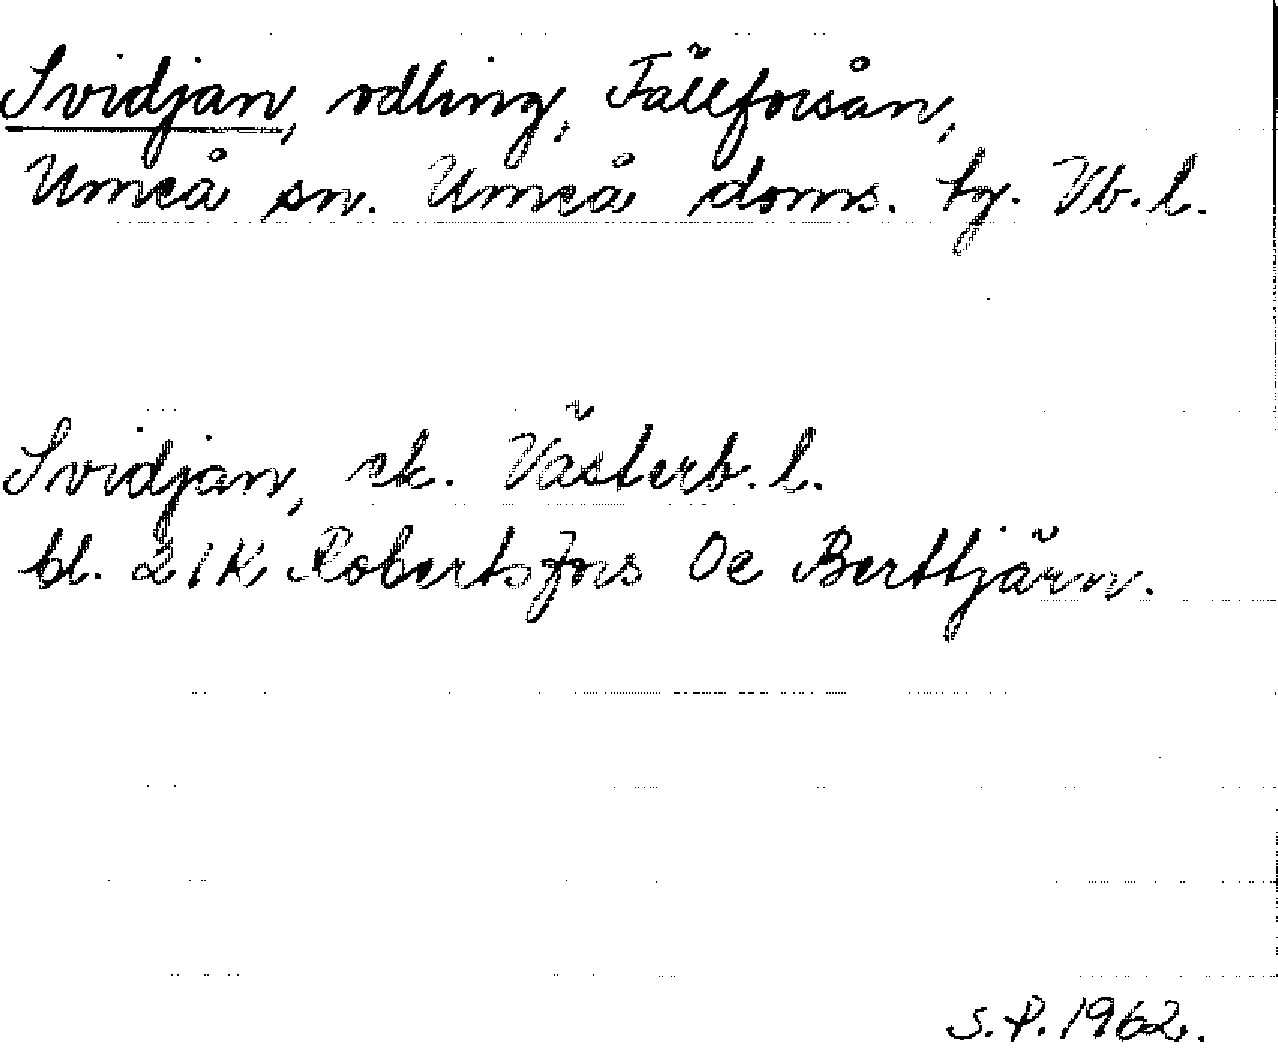 Svidjan, odling, Fällforsån,
Umeå sn. Umeå doms. tg. Vb. l.
Svidjan, ek. Västerb. l.
bl. 21K Robertsfors Oe Berttjärn.
S.P. 1962.